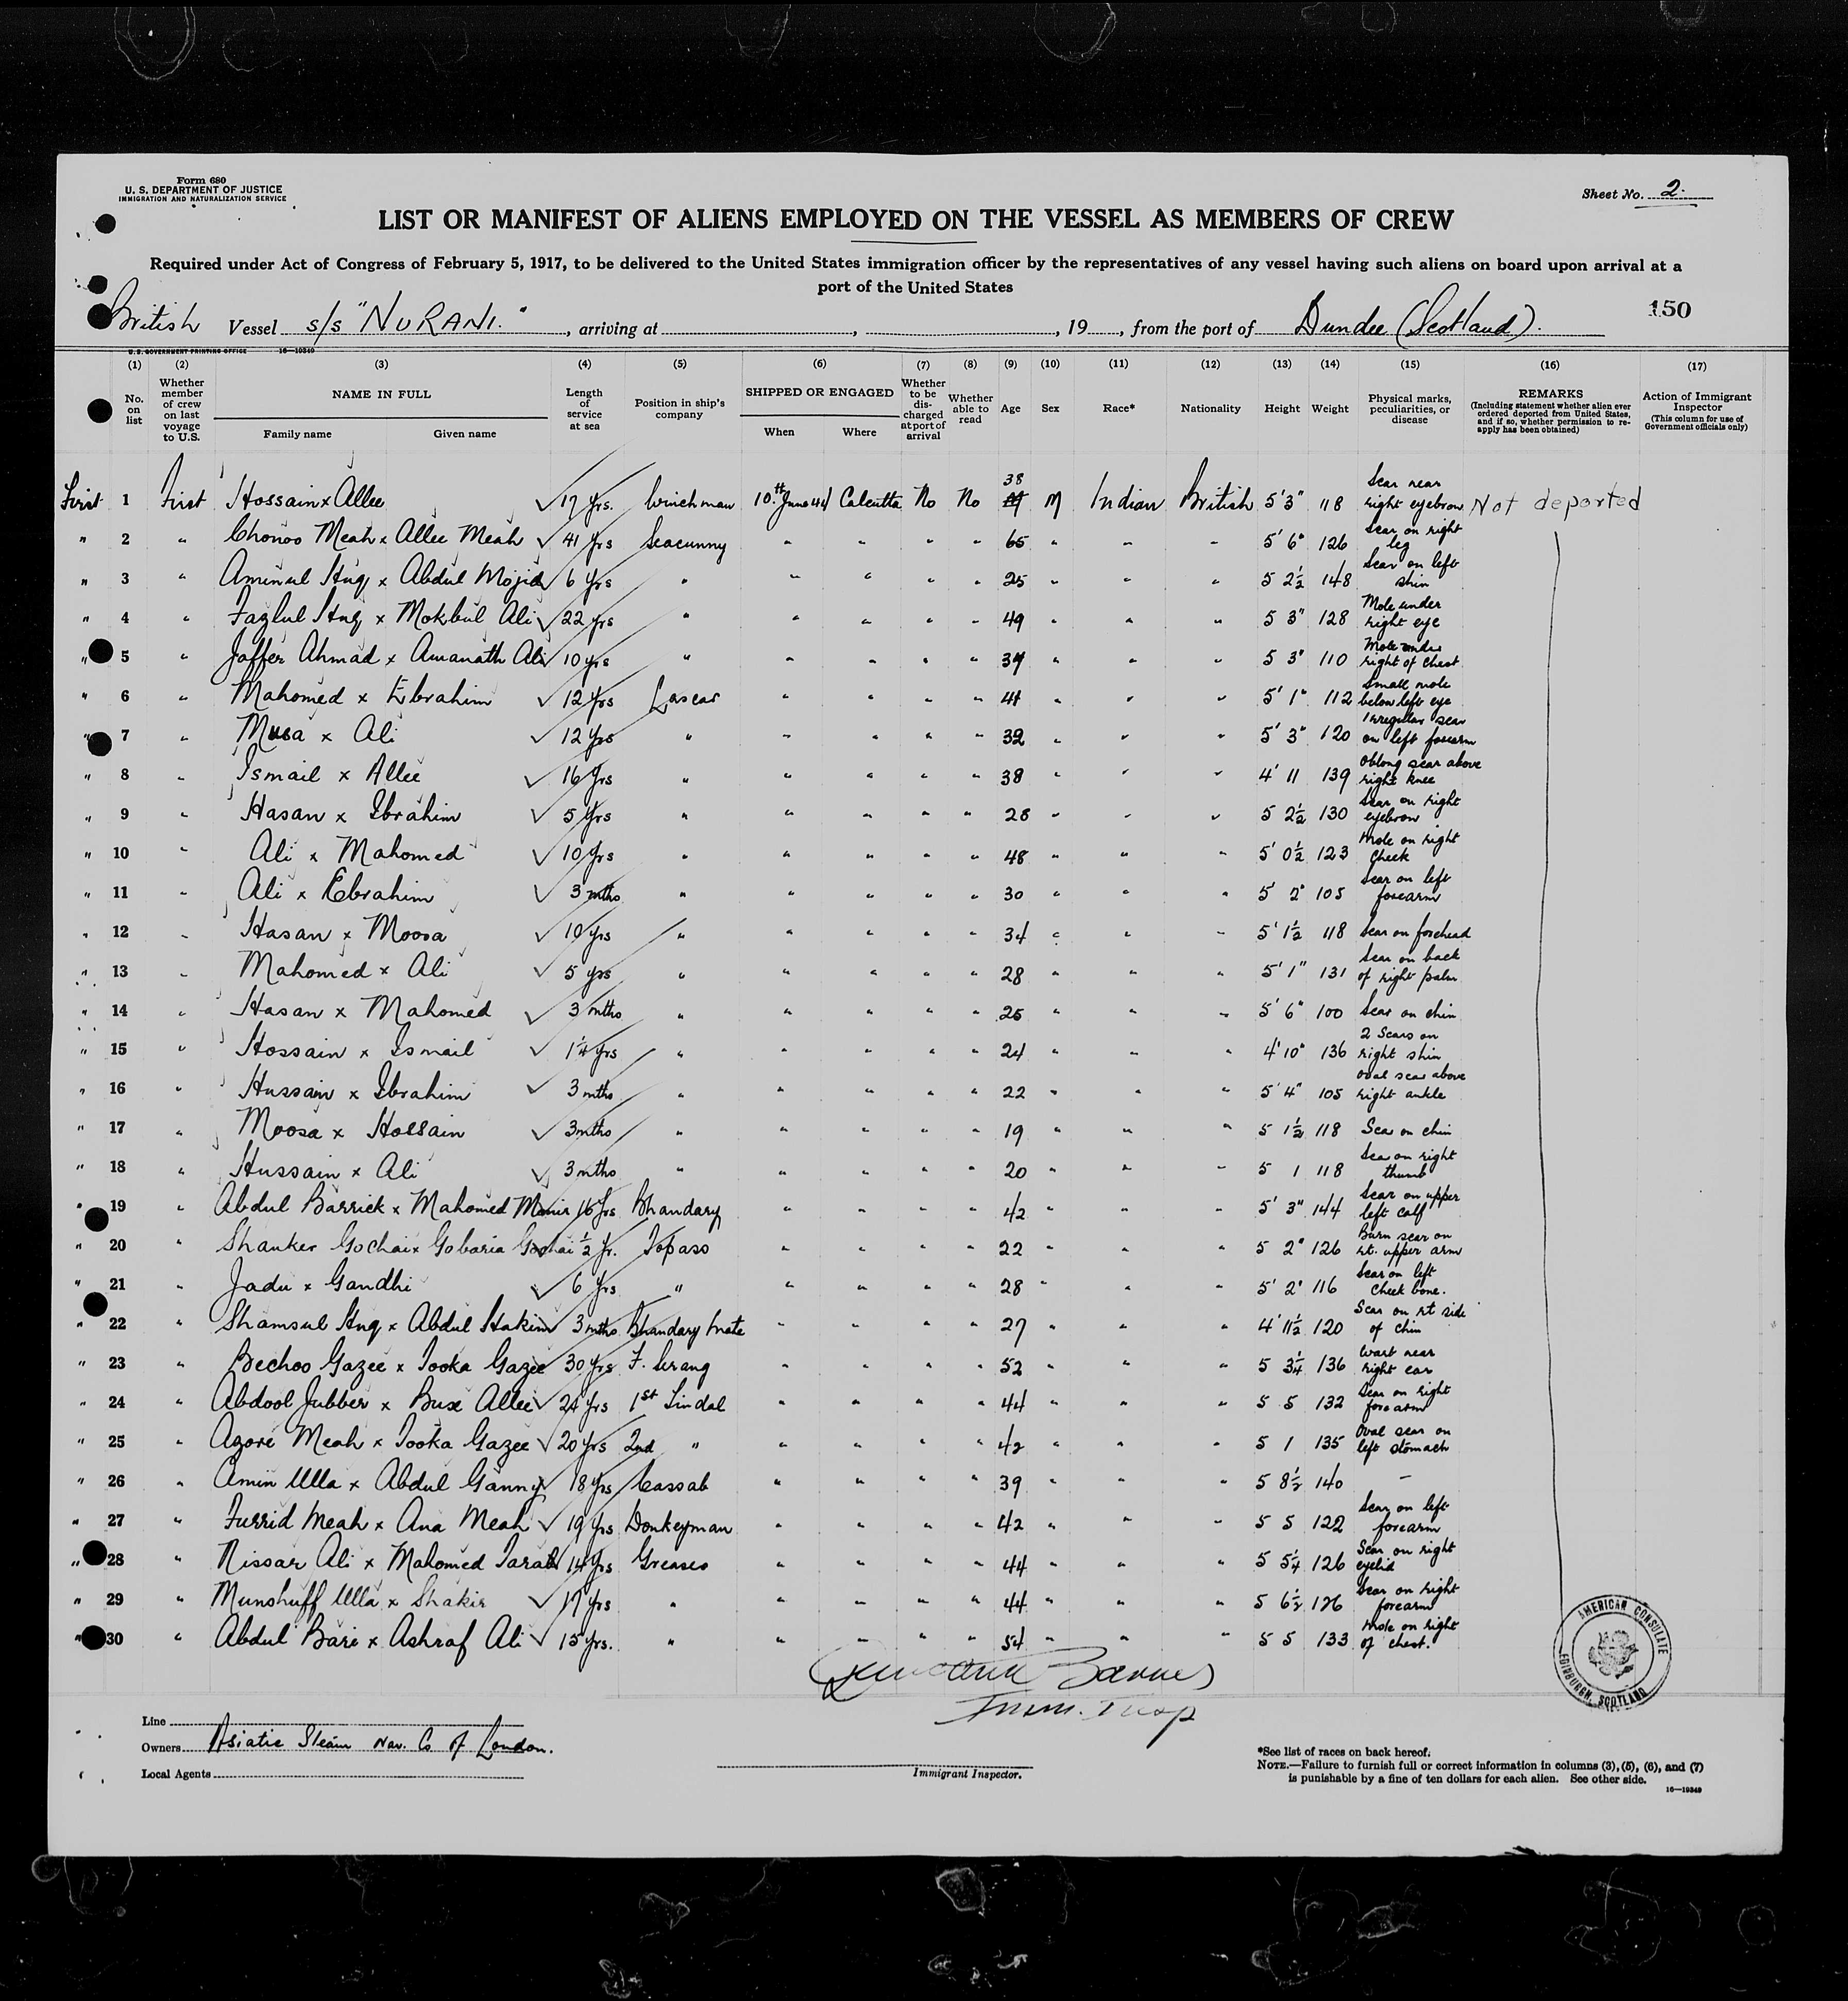 Form 680
U. S. DEPARTMENT OF JUSTICE
IMMIGRATION AND NATURALIZATION SERVICE
Sheet No. 2.
LIST OR MANIFEST OF ALIENS EMPLOYED ON THE VESSEL AS MEMBERS OF CREW
Required under Act of Congress of February 5, 1917, to be delivered to the United States immigration officer by the representatives of any vessel having such aliens on board upon arrival at a
port of the United States
150
British Vessel s/s "NURANI." , arriving at , , 19 , from the port of Dundee (Scotland).
U. S. GOVERNMENT PRINTING OFFICE 16—19349
(1) (2) (3) (4) (5) (6) (7) (8) (9) (10) (11) (12) (13) (14) (15) (16) (17)
No. on list
Whether member of crew on last voyage to U.S.
NAME IN FULL
Family name Given name
Length of service at sea
Position in ship's company
SHIPPED OR ENGAGED
When Where
Whether to be discharged at port of arrival
Whether able to read
Age
Sex
Race*
Nationality
Height
Weight
Physical marks, peculiarities, or disease
REMARKS
(Including statement whether alien ever ordered deported from United States, and if so, whether permission to reapply has been obtained)
Action of Immigrant Inspector
(This column for use of Government officials only)
First 1 First Hossain x Allee 17 yrs. Winchman 10th June 44 Calcutta No No 38 M Indian British 5'3" 118 Scar near right eyebrow Not deported
" 2 " Chonoo Meah x Allee Meah 41 yrs Seacunny " " " " 65 " " " 5' 6" 126 Scar on right leg
" 3 " Aminul Huq x Abdul Mojid 6 yrs " " " " " 25 " " " 5 2½ 148 Scar on left shin
" 4 " Fazlul Huq x Mokbul Ali 22 yrs " " " " " 49 " " " 5 3" 128 Mole under right eye
" 5 " Jaffer Ahmad x Amanath Ali 10 yrs " " " " " 39 " " " 5 3" 110 Mole under right of chest
" 6 " Mahomed x Ebrahim 12 yrs Lascar " " " " 41 " " " 5' 1" 112 Small mole below left eye
" 7 " Musa x Ali 12 yrs " " " " " 32 " " " 5' 3" 120 Irregular scar on left forearm
" 8 " Ismail x Allee 16 yrs " " " " " 38 " " " 4' 11 139 Oblong scar above right knee
" 9 " Hasan x Ibrahim 5 yrs " " " " " 28 " " " 5 2½ 130 Scar on right eyebrow
" 10 " Ali x Mahomed 10 yrs " " " " " 48 " " " 5' 0½ 123 Mole on right cheek
" 11 " Ali x Ebrahim 3 mths " " " " " 30 " " " 5' 2" 105 Scar on left forearm
" 12 " Hasan x Moosa 10 yrs " " " " " 34 " " " 5' 1½ 118 Scar on forehead
" 13 " Mahomed x Ali 5 yrs " " " " " 28 " " " 5' 1" 131 Scar on back of right palm
" 14 " Hasan x Mahomed 3 mths " " " " " 25 " " " 5' 6" 100 Scar on chin
" 15 " Hossain x Ismail 1¼ yrs " " " " " 24 " " " 4' 10" 136 2 Scars on right shin
" 16 " Hussain x Ibrahim 3 mths " " " " " 22 " " " 5' 4" 105 Oval scar above right ankle
" 17 " Moosa x Hossain 3 mths " " " " " 19 " " " 5 1½ 118 Scar on chin
" 18 " Hussain x Ali 3 mths " " " " " 20 " " " 5 1 118 Scar on right thumb
" 19 " Abdul Barrick x Mahomed Monir 16 yrs Bhandary " " " " 42 " " " 5' 3" 144 Scar on upper left calf
" 20 " Shanker Gochai x Gobaria Gochai ½ yr. Topass " " " " 22 " " " 5 2" 126 Burn scar on rt. upper arm
" 21 " Jadu x Gandhi 6 yrs " " " " " 28 " " " 5' 2" 116 Scar on left cheek bone.
" 22 " Shamsul Huq x Abdul Hakim 3 mths Bhandary mate " " " " 27 " " " 4' 11½ 120 Scar on rt side of chin
" 23 " Bechoo Gazee x Tooka Gazee 30 yrs F. Serang " " " " 52 " " " 5 3¼ 136 Wart near right ear
" 24 " Abdool Jubber x Bux Allee 24 yrs 1st Tindal " " " " 44 " " " 5 5 132 Scar on right forearm
" 25 " Azore Meah x Tooka Gazee 20 yrs 2nd " " " " " 42 " " " 5 1 135 Oval scar on left stomach
" 26 " Amin Ulla x Abdul Ganny 18 yrs Cassab " " " " 39 " " " 5 8½ 140 -
" 27 " Furrid Meah x Ana Meah 19 yrs Donkeyman " " " " 42 " " " 5 5 122 Scar on left forearm
" 28 " Nissar Ali x Mahomed Tarab 14 yrs Greaser " " " " 44 " " " 5 5¼ 126 Scar on right eyelid
" 29 " Munshuff Ulla x Shakir 17 yrs " " " " " 44 " " " 5 6½ 126 Scar on right forearm
" 30 " Abdul Bari x Ashraf Ali 15 yrs. " " " " " 54 " " " 5 5 133 Mole on right of chest.
Barnes
Imm. Insp
AMERICAN CONSULATE
EDINBURGH, SCOTLAND
Line
Owners Asiatic Steam Nav. Co of London.
Local Agents
Immigrant Inspector.
*See list of races on back hereof.
NOTE.—Failure to furnish full or correct information in columns (3), (5), (6), and (7)
is punishable by a fine of ten dollars for each alien. See other side.
16—19349